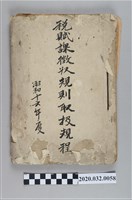 税賦課徴収規則取扱規程
昭和十六年度
2020.032.0058